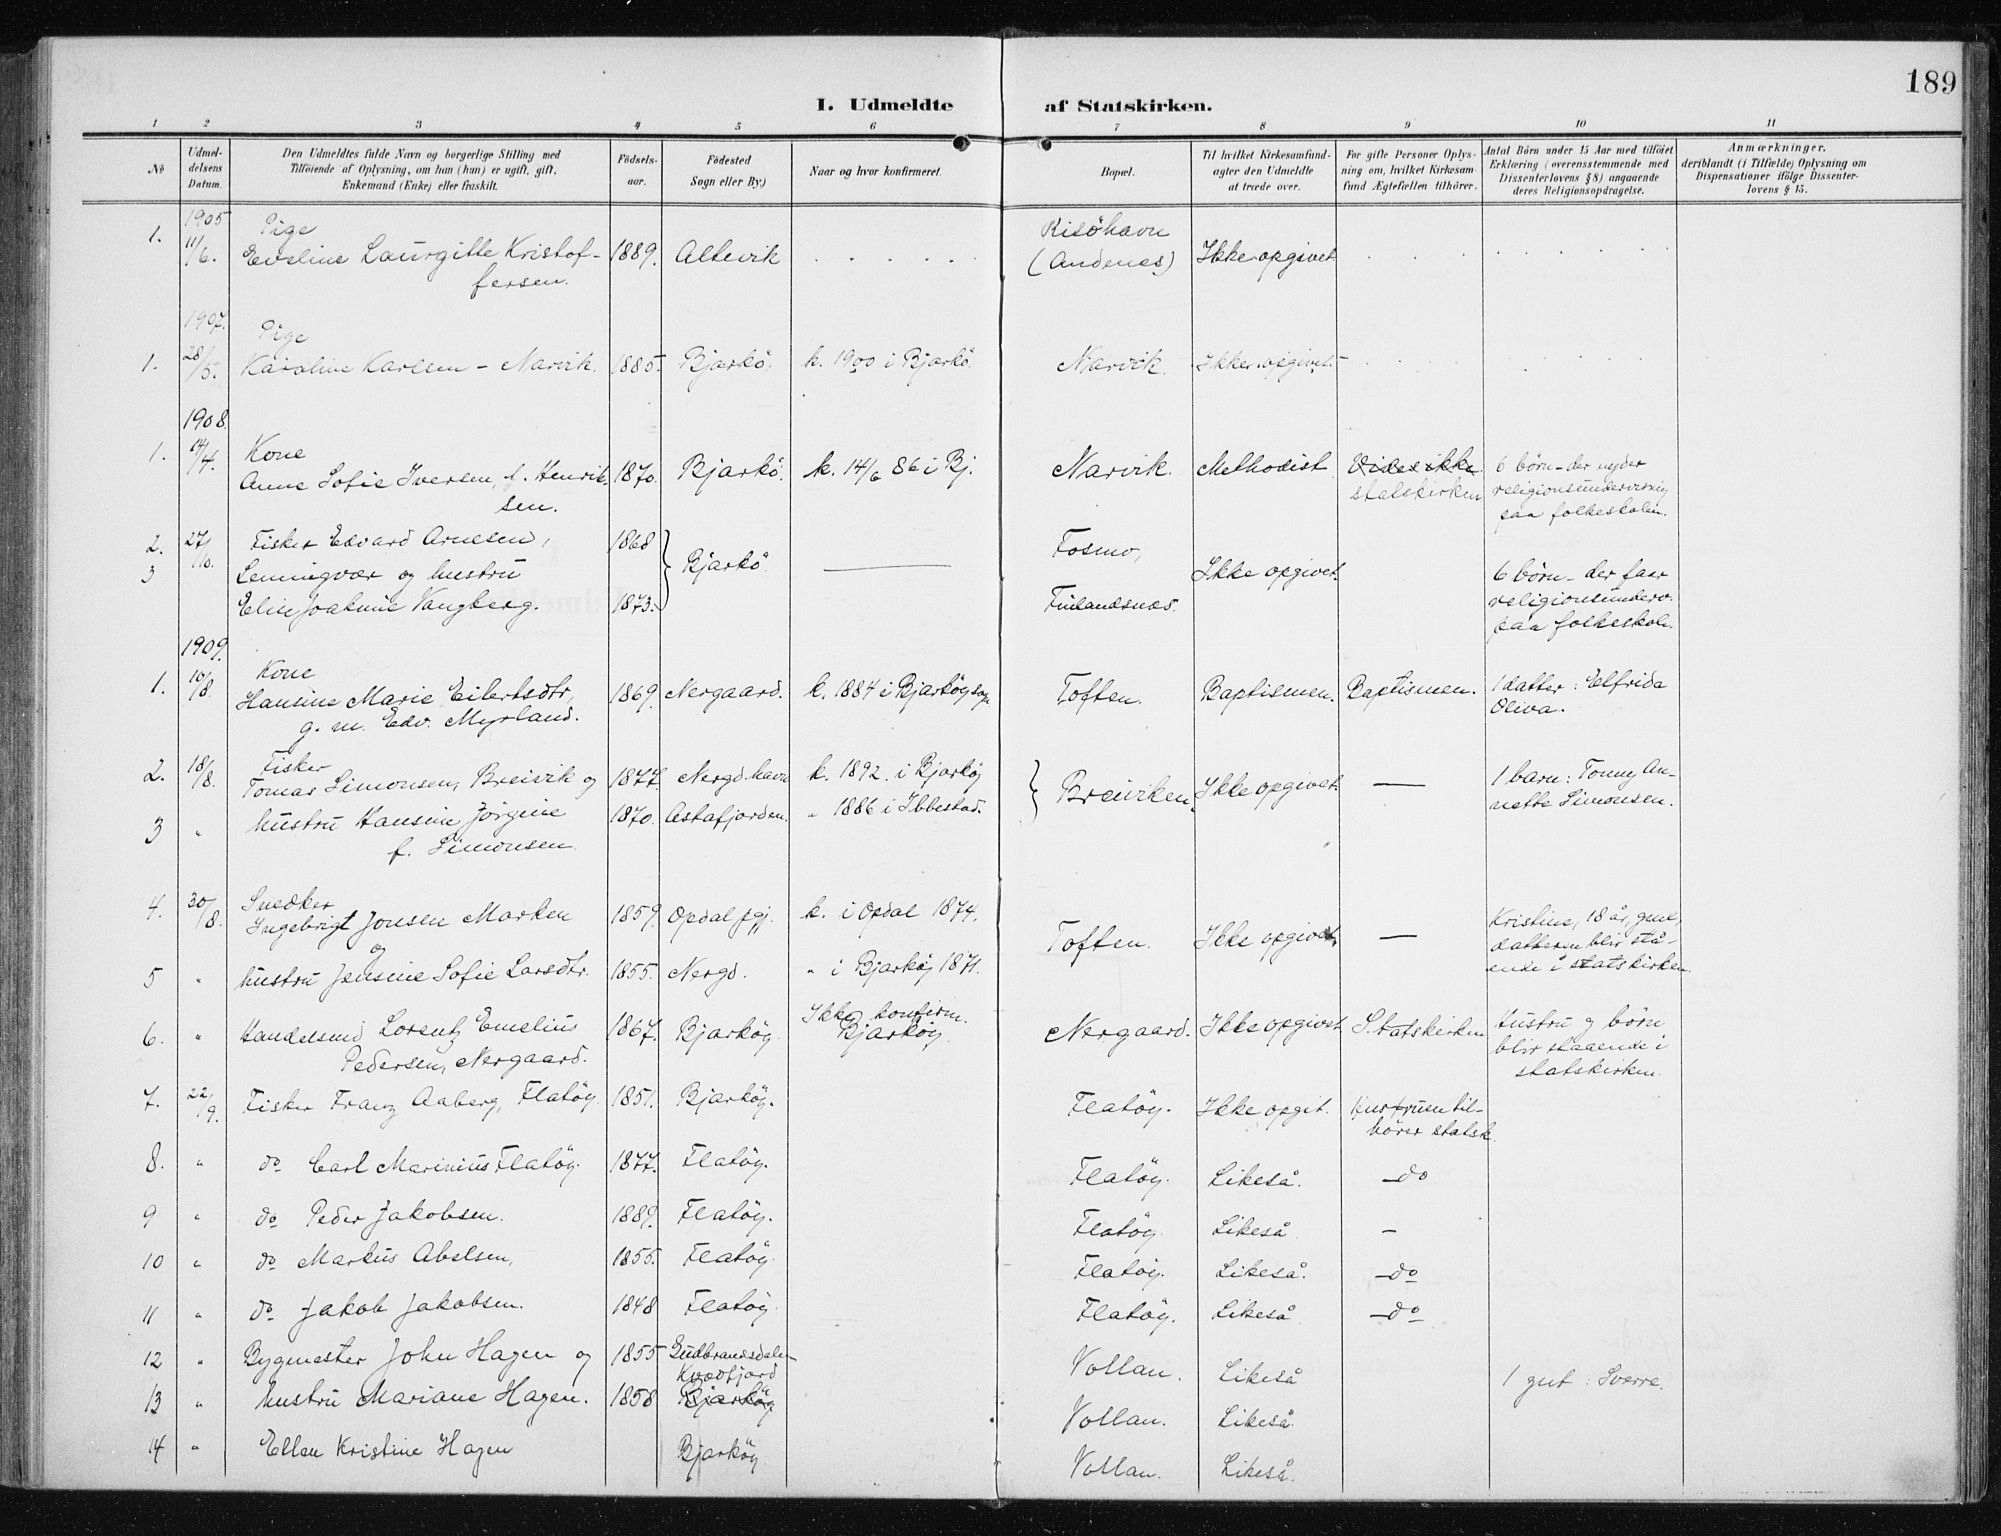 189
I. Udmeldte af Statskirken.
1 2 3 4 5 6 7 8 9 10 11
No
Udmeldelsens Datum.
Den Udmeldtes fulde Navn og borgerlige Stilling med
Tilföiende af Oplysning, om han (hun) er ugift, gift,
Enkemand (Enke) eller fraskilt.
Födsels-
aar.
Födested
Sogn eller By.)
Naar og hvor konfirmeret.
Bopæl.
Til hvilket Kirkesamfund-
agter den Udmeldte
at træde over.
For gifte Personer Oplys-
ning om, hvilket Kirkesam-
fund Ægtefællen tilhörer.
Antal Börn under 15 Aar med tilföiet
Erklæring (overensstemmende med
Dissenterlovens § 8) angaaende
deres Religionsopdragelse.
Anmærkninger,
deriblandt (i Tilfælde) Oplysning om
Dispensationer ifölge Dissenter-
lovens § 15.
1905
Pige Risöhavn
1. 11/6. Eveline Laurgitte Kristof- 1889. Altevik (Andenes) Ikke opgivet
fersen.
1907.
Pige
1. 28/5. Karoline Karlsen - Narvik. 1885. Bjarkö. k. 1900 i Bjarkö. Narvik. Ikke opgivet.
1908.
Kone
1. 14/4. Anne Sofie Iversen, f. Henrik- 1870. Bjarkö. k. 14/6 86 i Bj. Narvik. Methodist Vides ikke 6 börn - der nyder
sen. statskirken religionsundervisning
paa folkeskolen.
2. 27/10. Fisker Edvard Arnesen, 1868 Fosmo,
3 Lemmingvær og hustru Bjarkö. Ikke opgivet. 6 börn - der faar
Elise Joakime Vangberg. 1873. Finlandsnæs. religionsunderv.
paa folkeskole.
1909.
Kone
1. 10/8. Hansine Marie Eilertsdtr. 1869. Nergaard. k. 1884 i Bjarköy sogn Toften. Baptismen. Baptismen. 1 datter: Elfrida
g. m. Edv. Myrland. Oliva.
Fisker
2. 18/8. Tomas Simonsen, Breivik og 1877. Nergd. havn k. 1892. i Bjarköy Breiviken, Ikke opgivet. — 1 barn: Tonny An-
3 " hustru Hansine Jörgine 1870. Astafjorden. " 1886 i Ibbestad. nette Simonsen.
f. Simonsen
Snedker
4. 30/8. Ingebrigt Jonsen Marken 1859. Opdal pgj. k. i Opdal 1874. Toften. Ikke opgivet. — Kristine, 18 år,
og datteren blir stå-
5 " hustru Jensine Sofie Larsdtr. 1855. Nergd. " i Bjarköy 1871. ende i statskirken
Ikke konfirm.
6. " Handelsmd Lorentz Emelius 1867. Bjarköy. Bjarköy. Nergaard. Ikke opgivet Statskirken Hustru og börn
Pedersen, Nergaard. blir staaende i
statskirken.
7. 22/9. Fisker Franz Aaberg, Flatöy. 1851. Bjarköy. Flatöy. Ikke opgit. Hustruen til-
hörer statsk.
8. " do Carl Marinius Flatöy. 1877. Flatöy. Flatöy. Likeså. -do
9 " do Peder Jakobsen. 1889. Flatöy. Flatöy. Likeså -
10 " do Markus Abelsen, 1855. Flatöy. Flatöy. Likeså. -do
11 " do Jakob Jakobsen. 1848 Flatöy. Flatöy. Likeså -do
12 " Bygmester John Hagen og 1855 Gudbrandsdalen Vollan. Likeså 1 gut: Sverre.
Kvæfjord
13 " hustru Mariane Hagen. 1858 Bjarköy Vollan. Likeså.
14 " Ellen Kristine Hagen Bjarköy Vollan. Likeså.